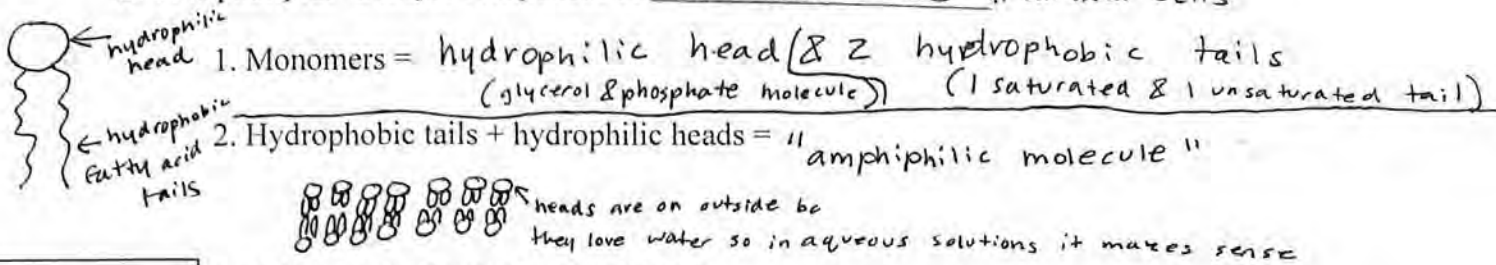 hydrophilic head
1. Monomers = hydrophilic head & 2 hydrophobic tails
(glycerol & phosphate molecule) (1 saturated & 1 unsaturated tail)
hydrophobic fatty acid tails
2. Hydrophobic tails + hydrophilic heads = "amphiphilic molecule"
heads are on outside bc
they love water so in aqueous solutions it makes sense